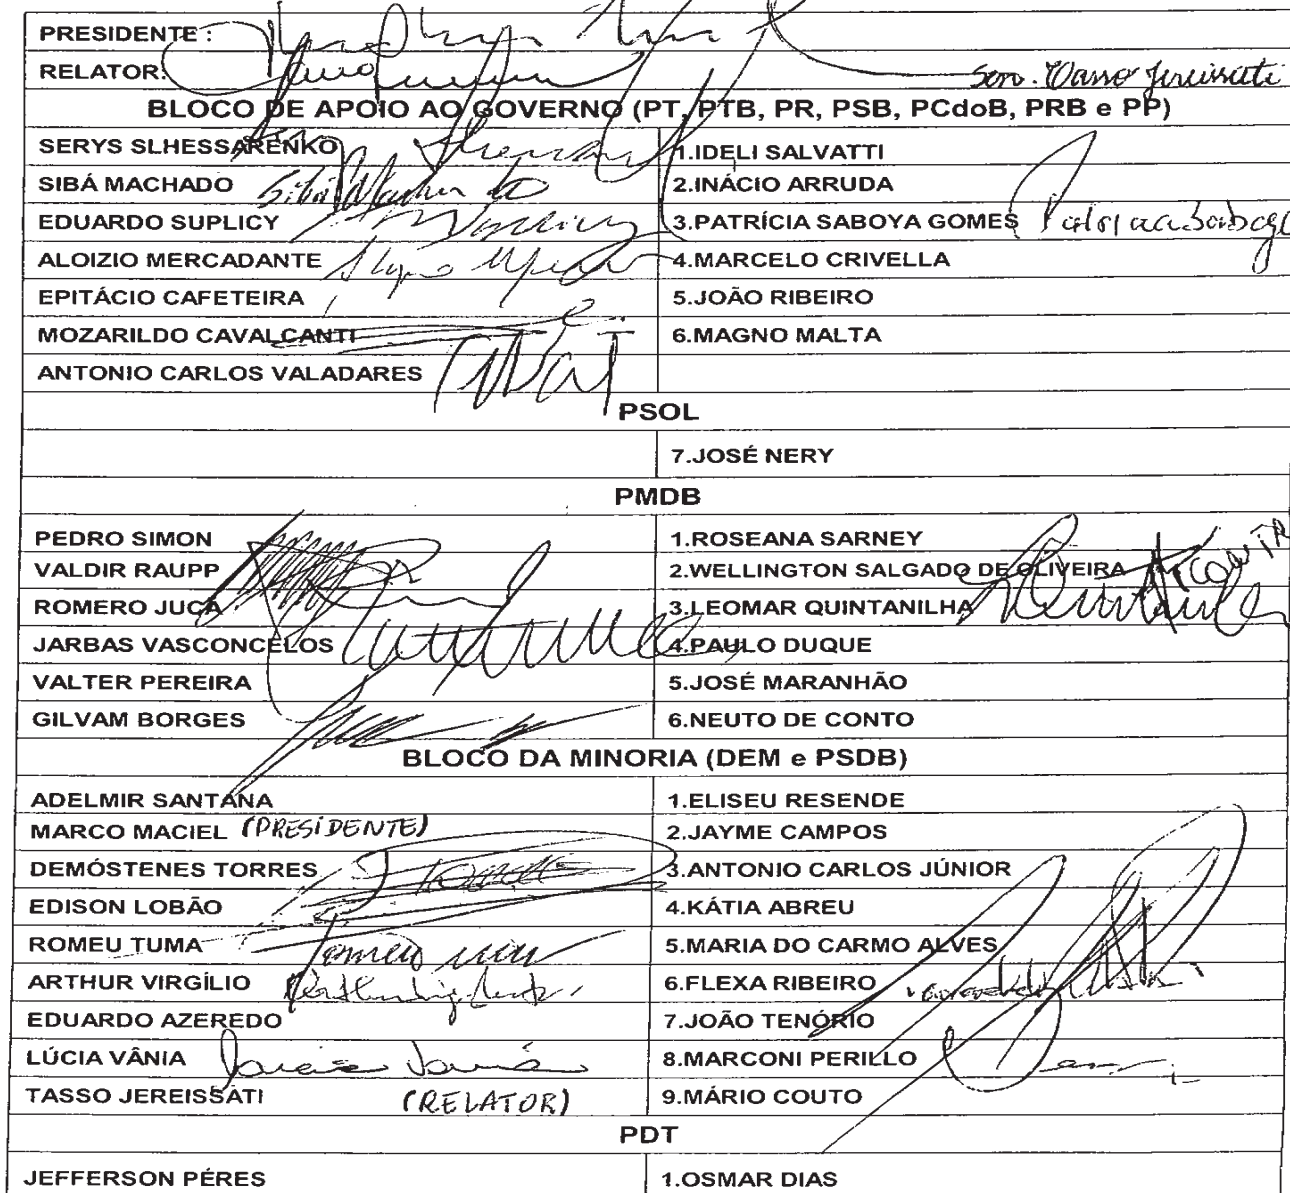 PRESIDENTE :
RELATOR: Sen. Tasso Jereissati
BLOCO DE APOIO AO GOVERNO (PT, PTB, PR, PSB, PCdoB, PRB e PP)
SERYS SLHESSARENKO 1.IDELI SALVATTI
SIBÁ MACHADO Sibá Machado 2.INÁCIO ARRUDA
EDUARDO SUPLICY 3.PATRÍCIA SABOYA GOMES Patrícia Saboya
ALOIZIO MERCADANTE 4.MARCELO CRIVELLA
EPITÁCIO CAFETEIRA 5.JOÃO RIBEIRO
MOZARILDO CAVALCANTI 6.MAGNO MALTA
ANTONIO CARLOS VALADARES
PSOL
7.JOSÉ NERY
PMDB
PEDRO SIMON 1.ROSEANA SARNEY
VALDIR RAUPP 2.WELLINGTON SALGADO DE OLIVEIRA
ROMERO JUCÁ 3.LEOMAR QUINTANILHA
JARBAS VASCONCELOS 4.PAULO DUQUE
VALTER PEREIRA 5.JOSÉ MARANHÃO
GILVAM BORGES 6.NEUTO DE CONTO
BLOCO DA MINORIA (DEM e PSDB)
ADELMIR SANTANA 1.ELISEU RESENDE
MARCO MACIEL (PRESIDENTE) 2.JAYME CAMPOS
DEMÓSTENES TORRES 3.ANTONIO CARLOS JÚNIOR
EDISON LOBÃO 4.KÁTIA ABREU
ROMEU TUMA Romeu Tuma 5.MARIA DO CARMO ALVES
ARTHUR VIRGÍLIO 6.FLEXA RIBEIRO
EDUARDO AZEREDO 7.JOÃO TENÓRIO
LÚCIA VÂNIA Lúcia Vânia 8.MARCONI PERILLO
TASSO JEREISSATI (RELATOR) 9.MÁRIO COUTO
PDT
JEFFERSON PÉRES 1.OSMAR DIAS